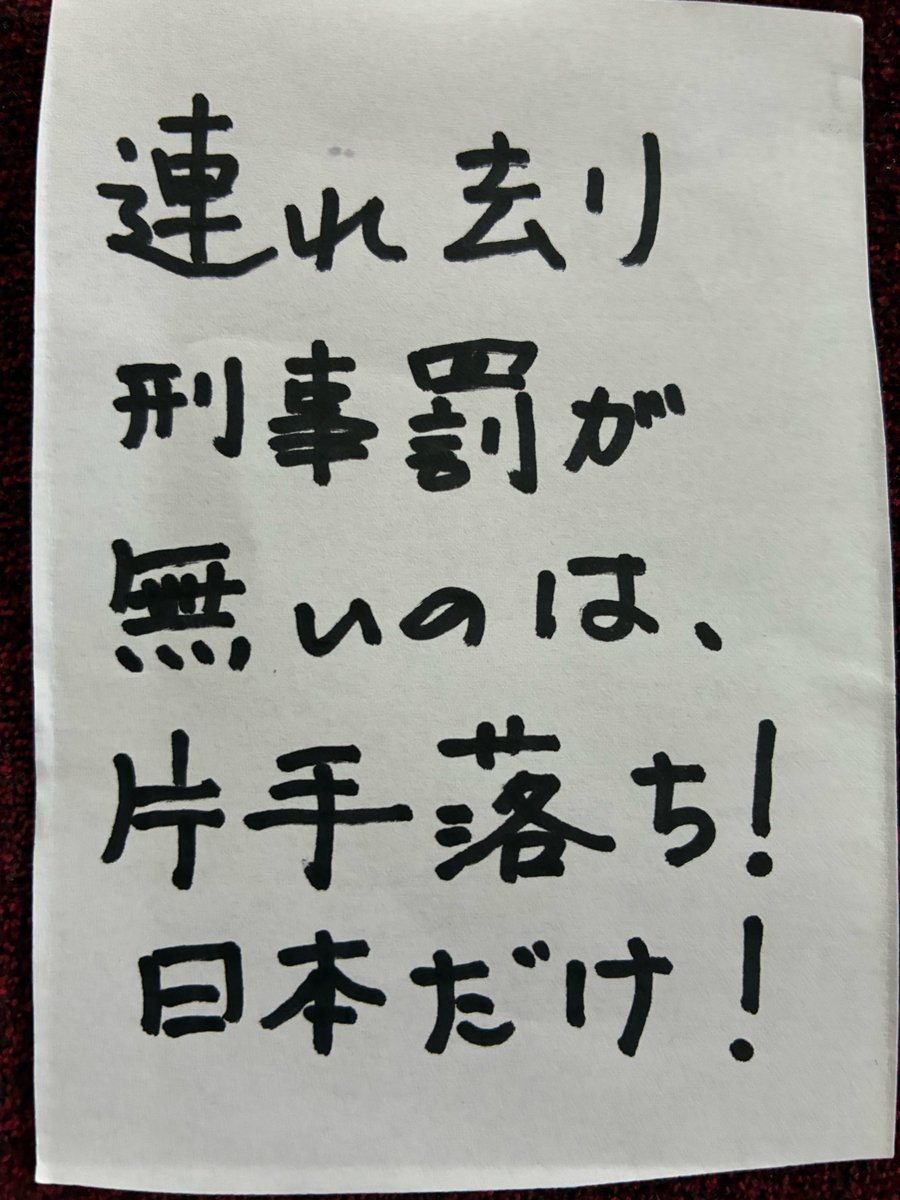 連れ去り
刑事罰が
無いのは、
片手落ち!
日本だけ!